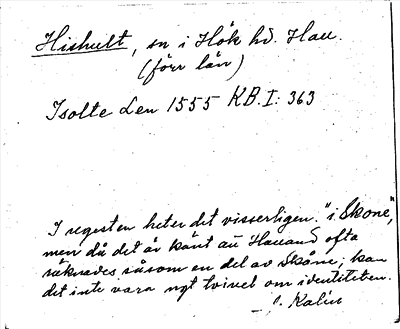 Hishult, sn i Hök hd. Hall.
(förr län)
Isolte Len 1555 KB.I: 363
I regesten heter det visserligen "i Skone",
men då det är känt att Halland ofta
räknades såsom en del av Skåne, kan
det inte vara ngt tvivel om identiteten.
Kalén